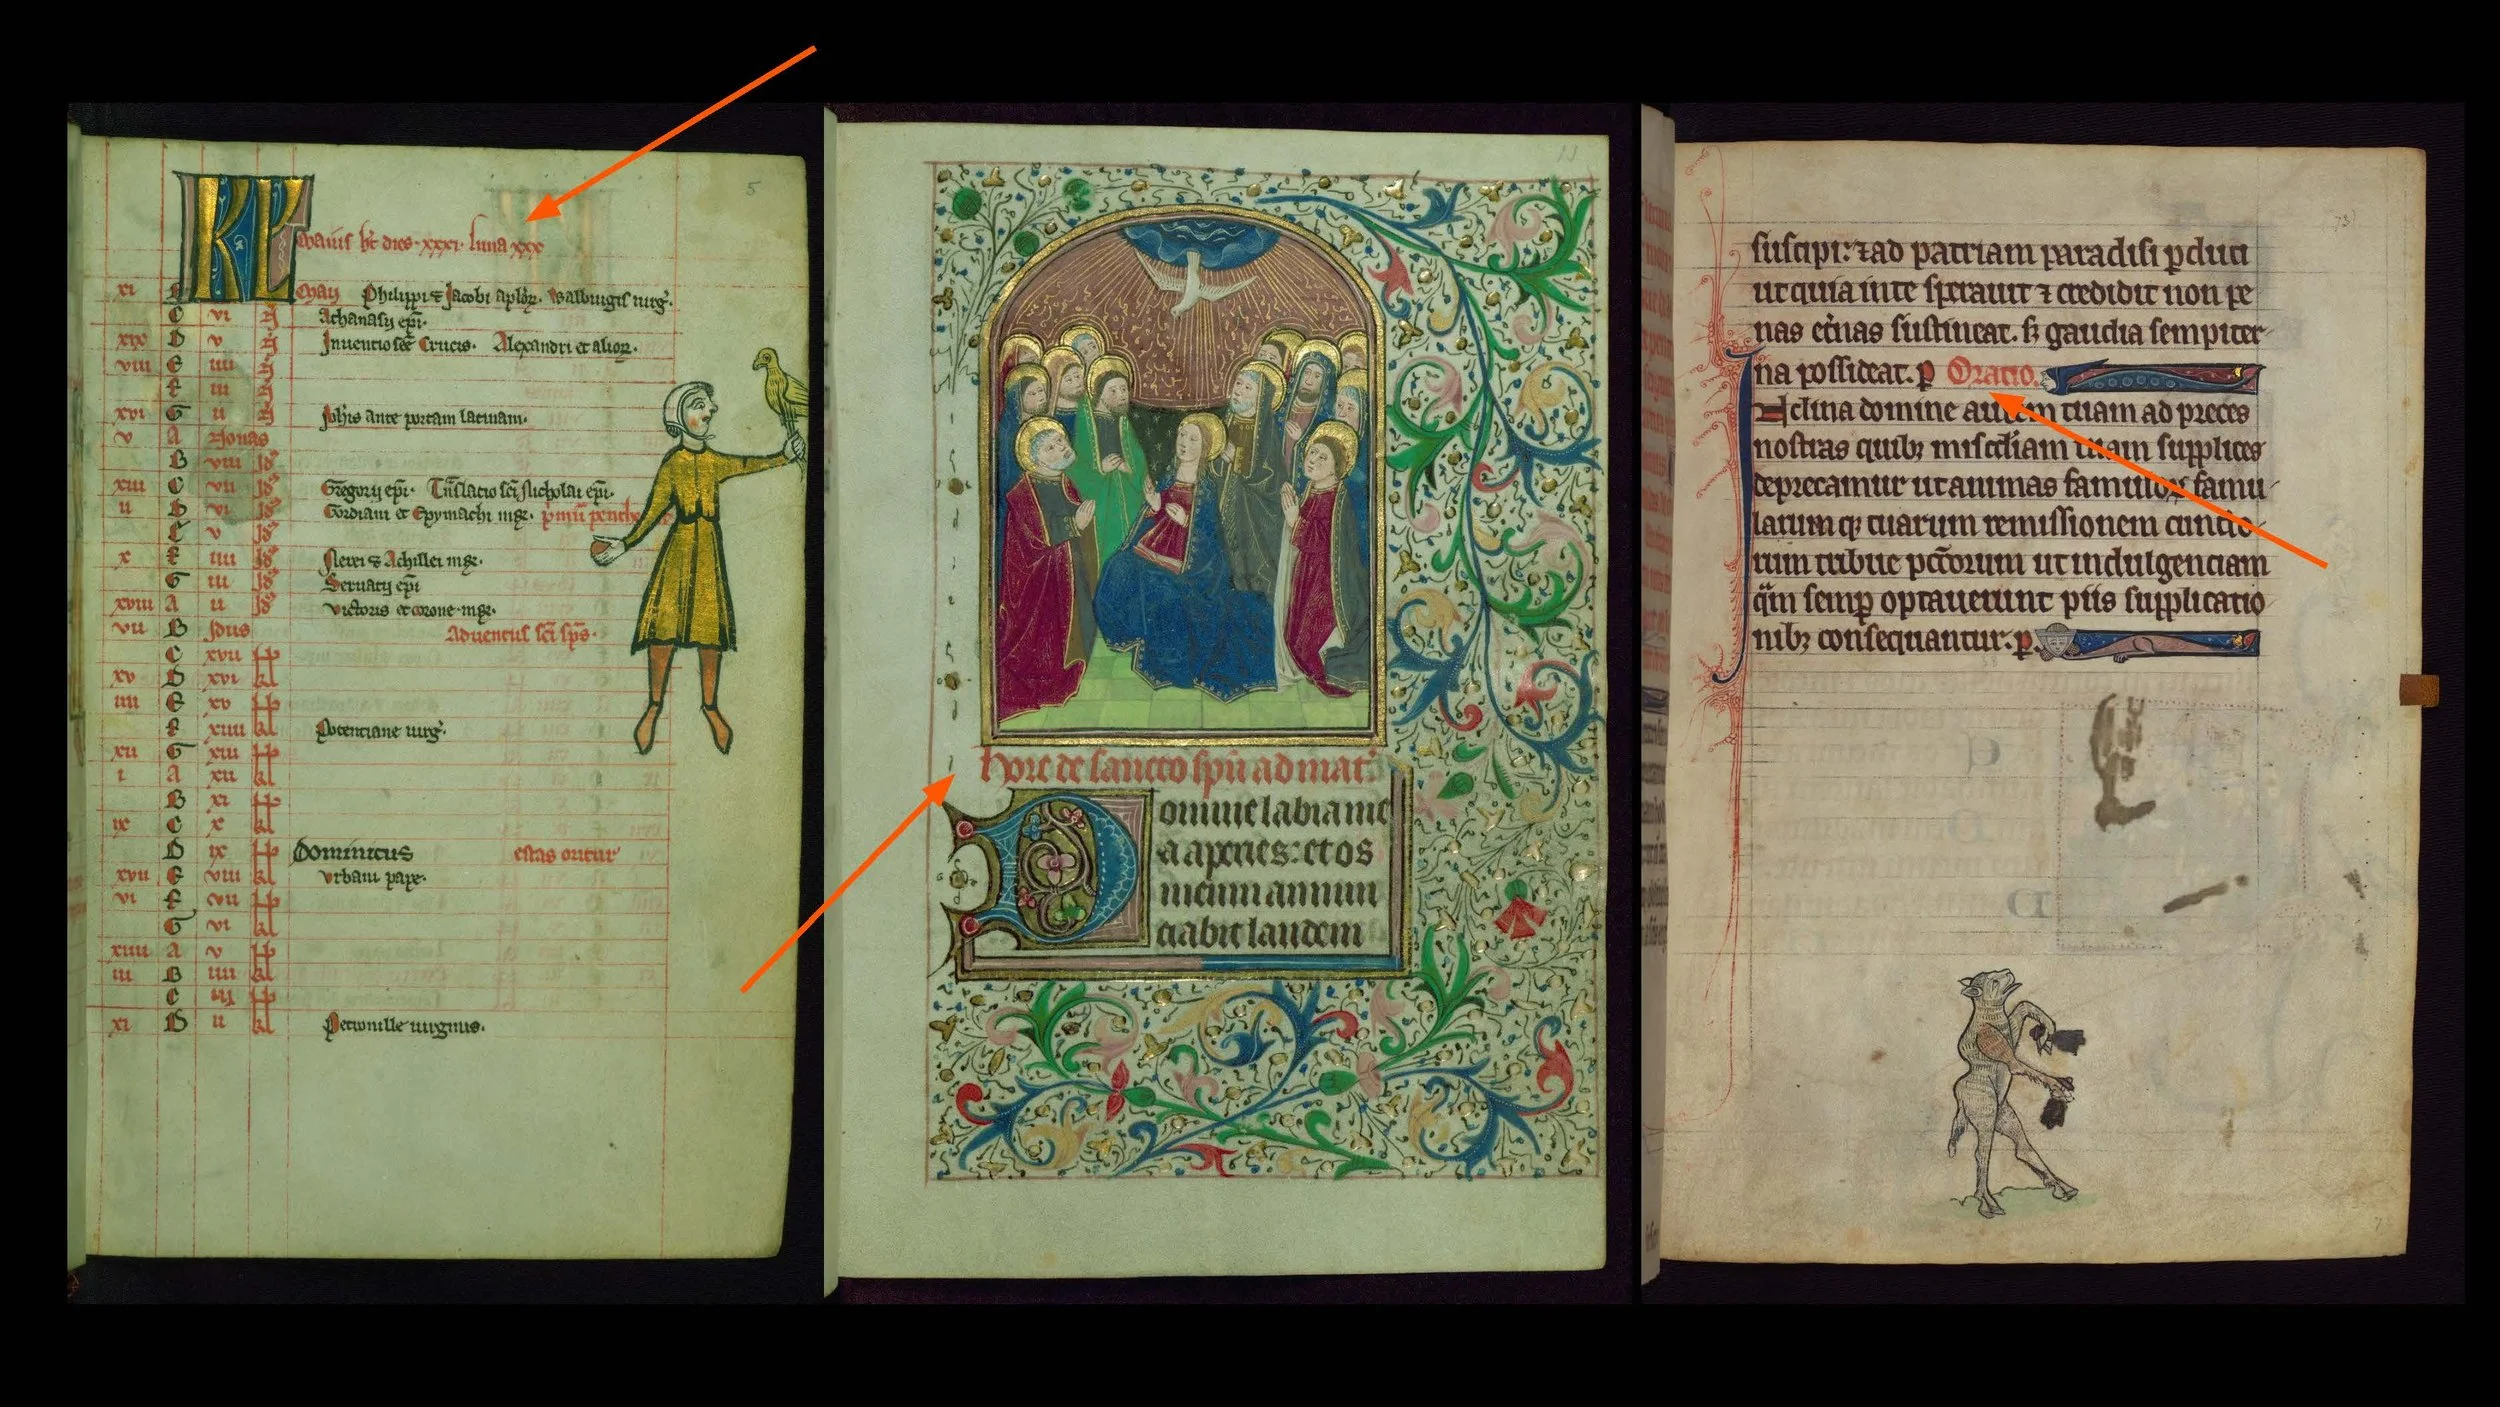 5
KL
Maius ht dies xxxi luna xxx
xi B Maij Philippi ⁊ Jacobi
C vi Athanasij epi.
xix D v Inuentio sce Crucis. Alexandri et alior.
viii E iiii
F iii
xvi G ii Johis ante portam latinam.
v A Nonas
B viii Id
xiii C vii Id Gregorij epi. Tnslatio sci Nicholai epi.
ii D vi Id Gordiani et Epymachi
E v Id
x F iiii Id Nerei ⁊ Achillei
G iii Id Seruatij epi
xviii A ii Id Victoris et corone
vii B Idus Aduentus sci sps.
C xvii kl
xv D xvi kl
iiii E xv kl
F xiiii kl Potentiane uirg.
xii G xiii kl
i A xii kl
B xi kl
ix C x kl
D ix kl Dominicus estas oritur
xvii E viii kl Vrbani pape.
vi F vii kl
G vi kl
xiiii A v kl
iii B iiii kl
C iii kl
xi D ii kl Petronille uirginis.
13
Hore de sancto spu ad mat
Domine labia me
a aperies: et os
meum annun
ciabit laudem
73
suscipi: ⁊ ad patriam paradisi pduci
ut quia in te sperauit ⁊ credidit non pe
nas etnas sustineat. sꝫ gaudia sempiter
na possideat. p Oratio.
Inclina domine aurem tuam ad preces
nostras quibꝫ miscdiam tuam supplices
deprecamur ut animas famulorꝫ famu
larumqꝫ tuarum remissionem cuncto
rum tribue pccorum ut indulgenciam
qm semp optauerunt piis supplicatio
nibꝫ consequantur. p